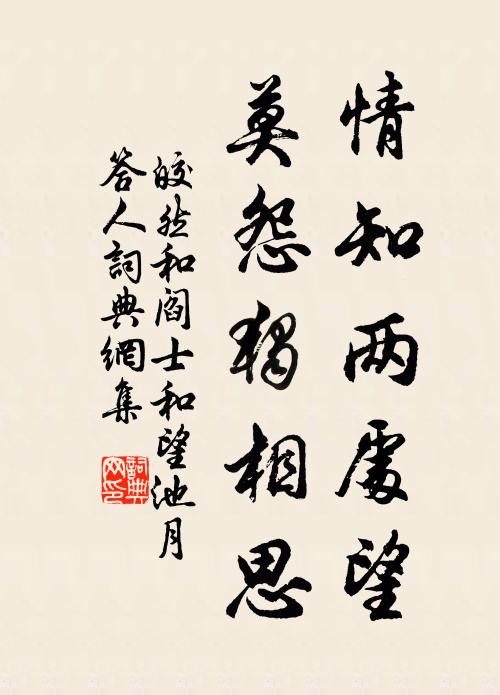 情知两處望
莫怨獨相思
皎然和阎士和望池月
答人詞典網集
詞典
网印